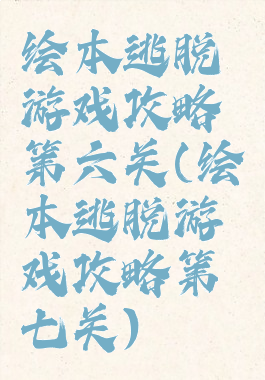 绘本逃脱
游戏攻略
第六关(绘
本逃脱游
戏攻略第
七关)